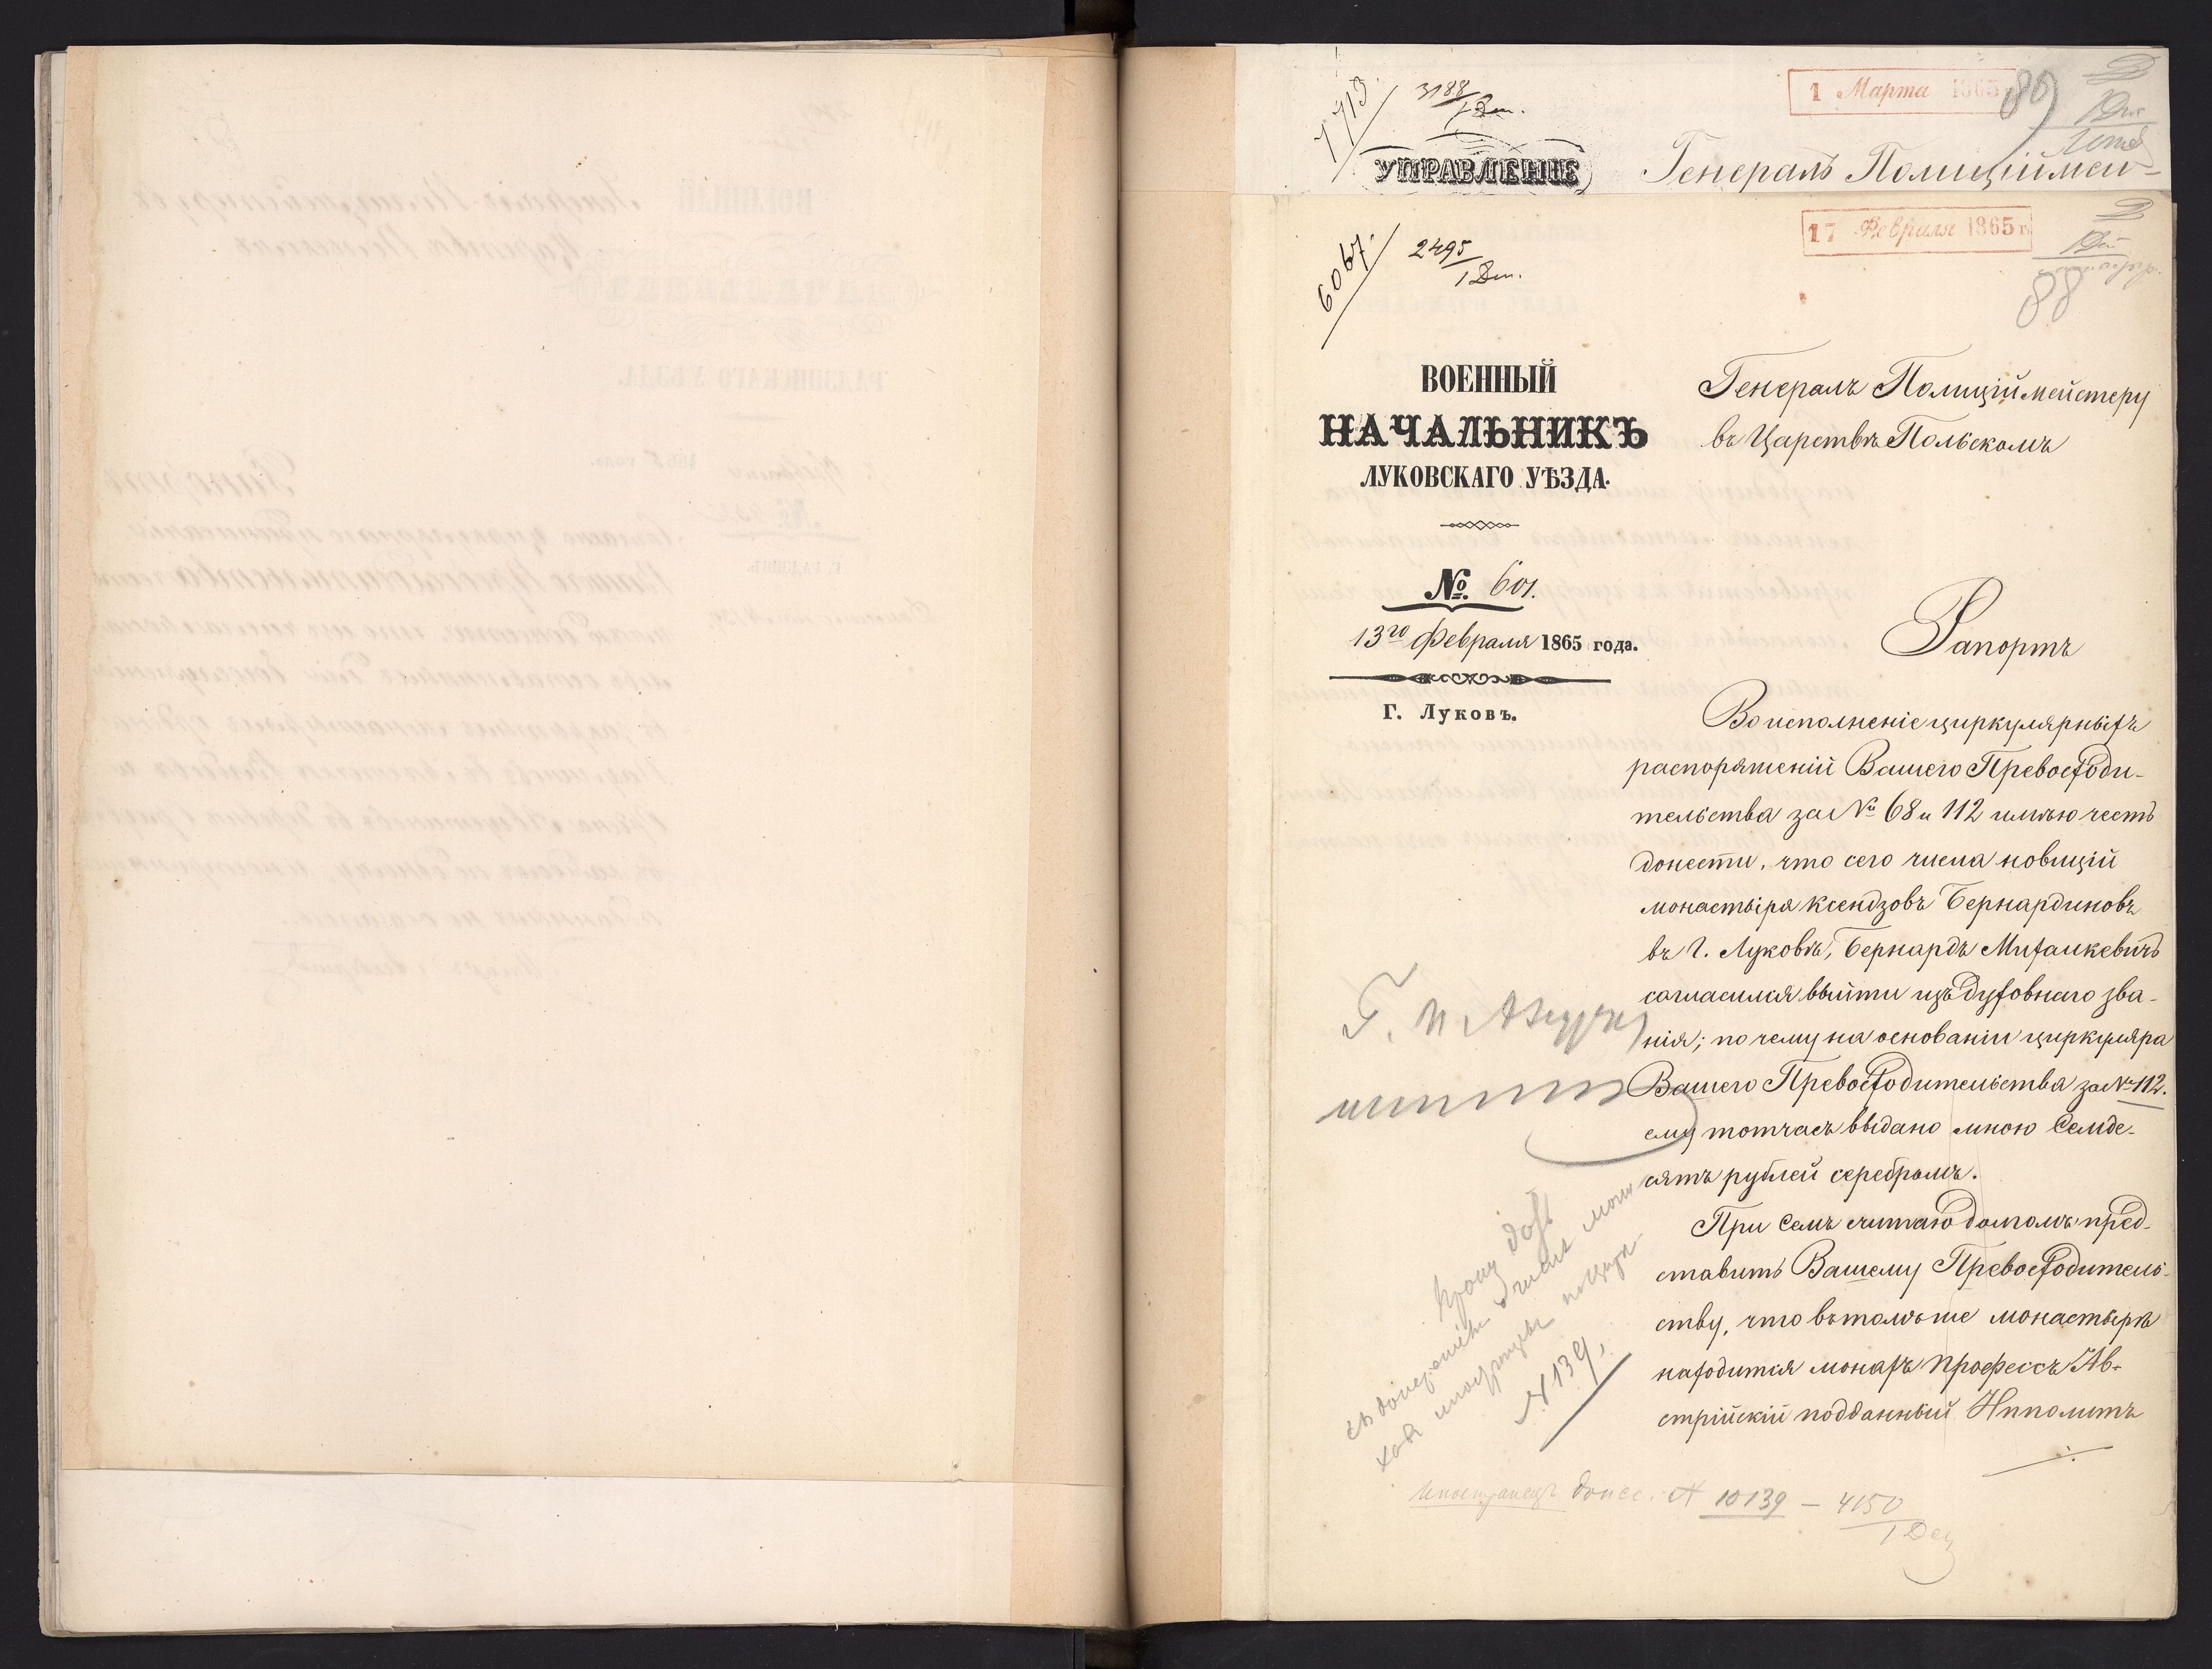 7713.
3188
1 Дѣл.
1 Марта 1865
89
УПРАВЛЕНІЕ
Генералъ Полиціймей-
6067.
2495
1 Дѣл.
17 Февраля 1865 г.
88
ВОЕННЫЙ
НАЧАЛЬНИКЪ
ЛУКОВСКАГО УѢЗДА.
№ 601.
13го Февраля 1865 года.
Г. Луковъ.
Генералъ Полиціймейстеру
въ Царствѣ Польскомъ
Рапортъ
Во исполненіе циркулярныхъ
распоряженій Вашего Превосходи-
тельства за № 68 и 112 имѣю честь
донести, что сего числа новицій
монастыря Ксендзовъ Бернардиновъ
въ Г. Луковѣ, Бернардъ Михалкевичъ
согласился выйти изъ духовнаго зва-
нія; по чему на основаніи циркуляра
Вашего Превосходительства за № 112.
ему тотчасъ выдано мною Семде-
сятъ рублей серебромъ.
При семъ считаю долгомъ пред-
ставить Вашему Превосходитель-
ству, что въ томъ же монастырѣ
находится монахъ профессъ Ав-
стрійскій подданный Ипполитъ
№ 139,
Иностранецъ донес. № 10139 — 4150